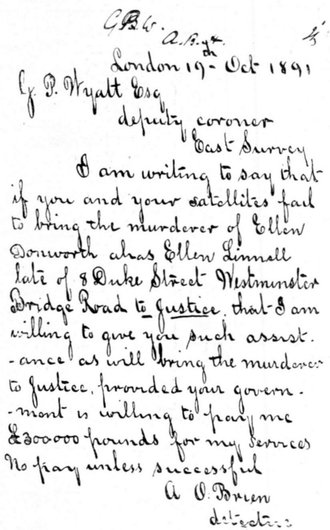 G.P.W.
London 19th Oct 1891
G. P. Wyatt Esq
deputy coroner
East Survey
I am writing to say that
if you and your satellites fail
to bring the murderer of Ellen
Donworth alias Ellen Linnell
late of 8 Duke Street Westminster
Bridge Road to Justice, that I am
willing to give you such assist-
-ance as will bring the murderer
to Justice, provided your govern-
-ment is willing to pay me
£300000 pounds for my services
No pay unless successful
A O. Brien
detective